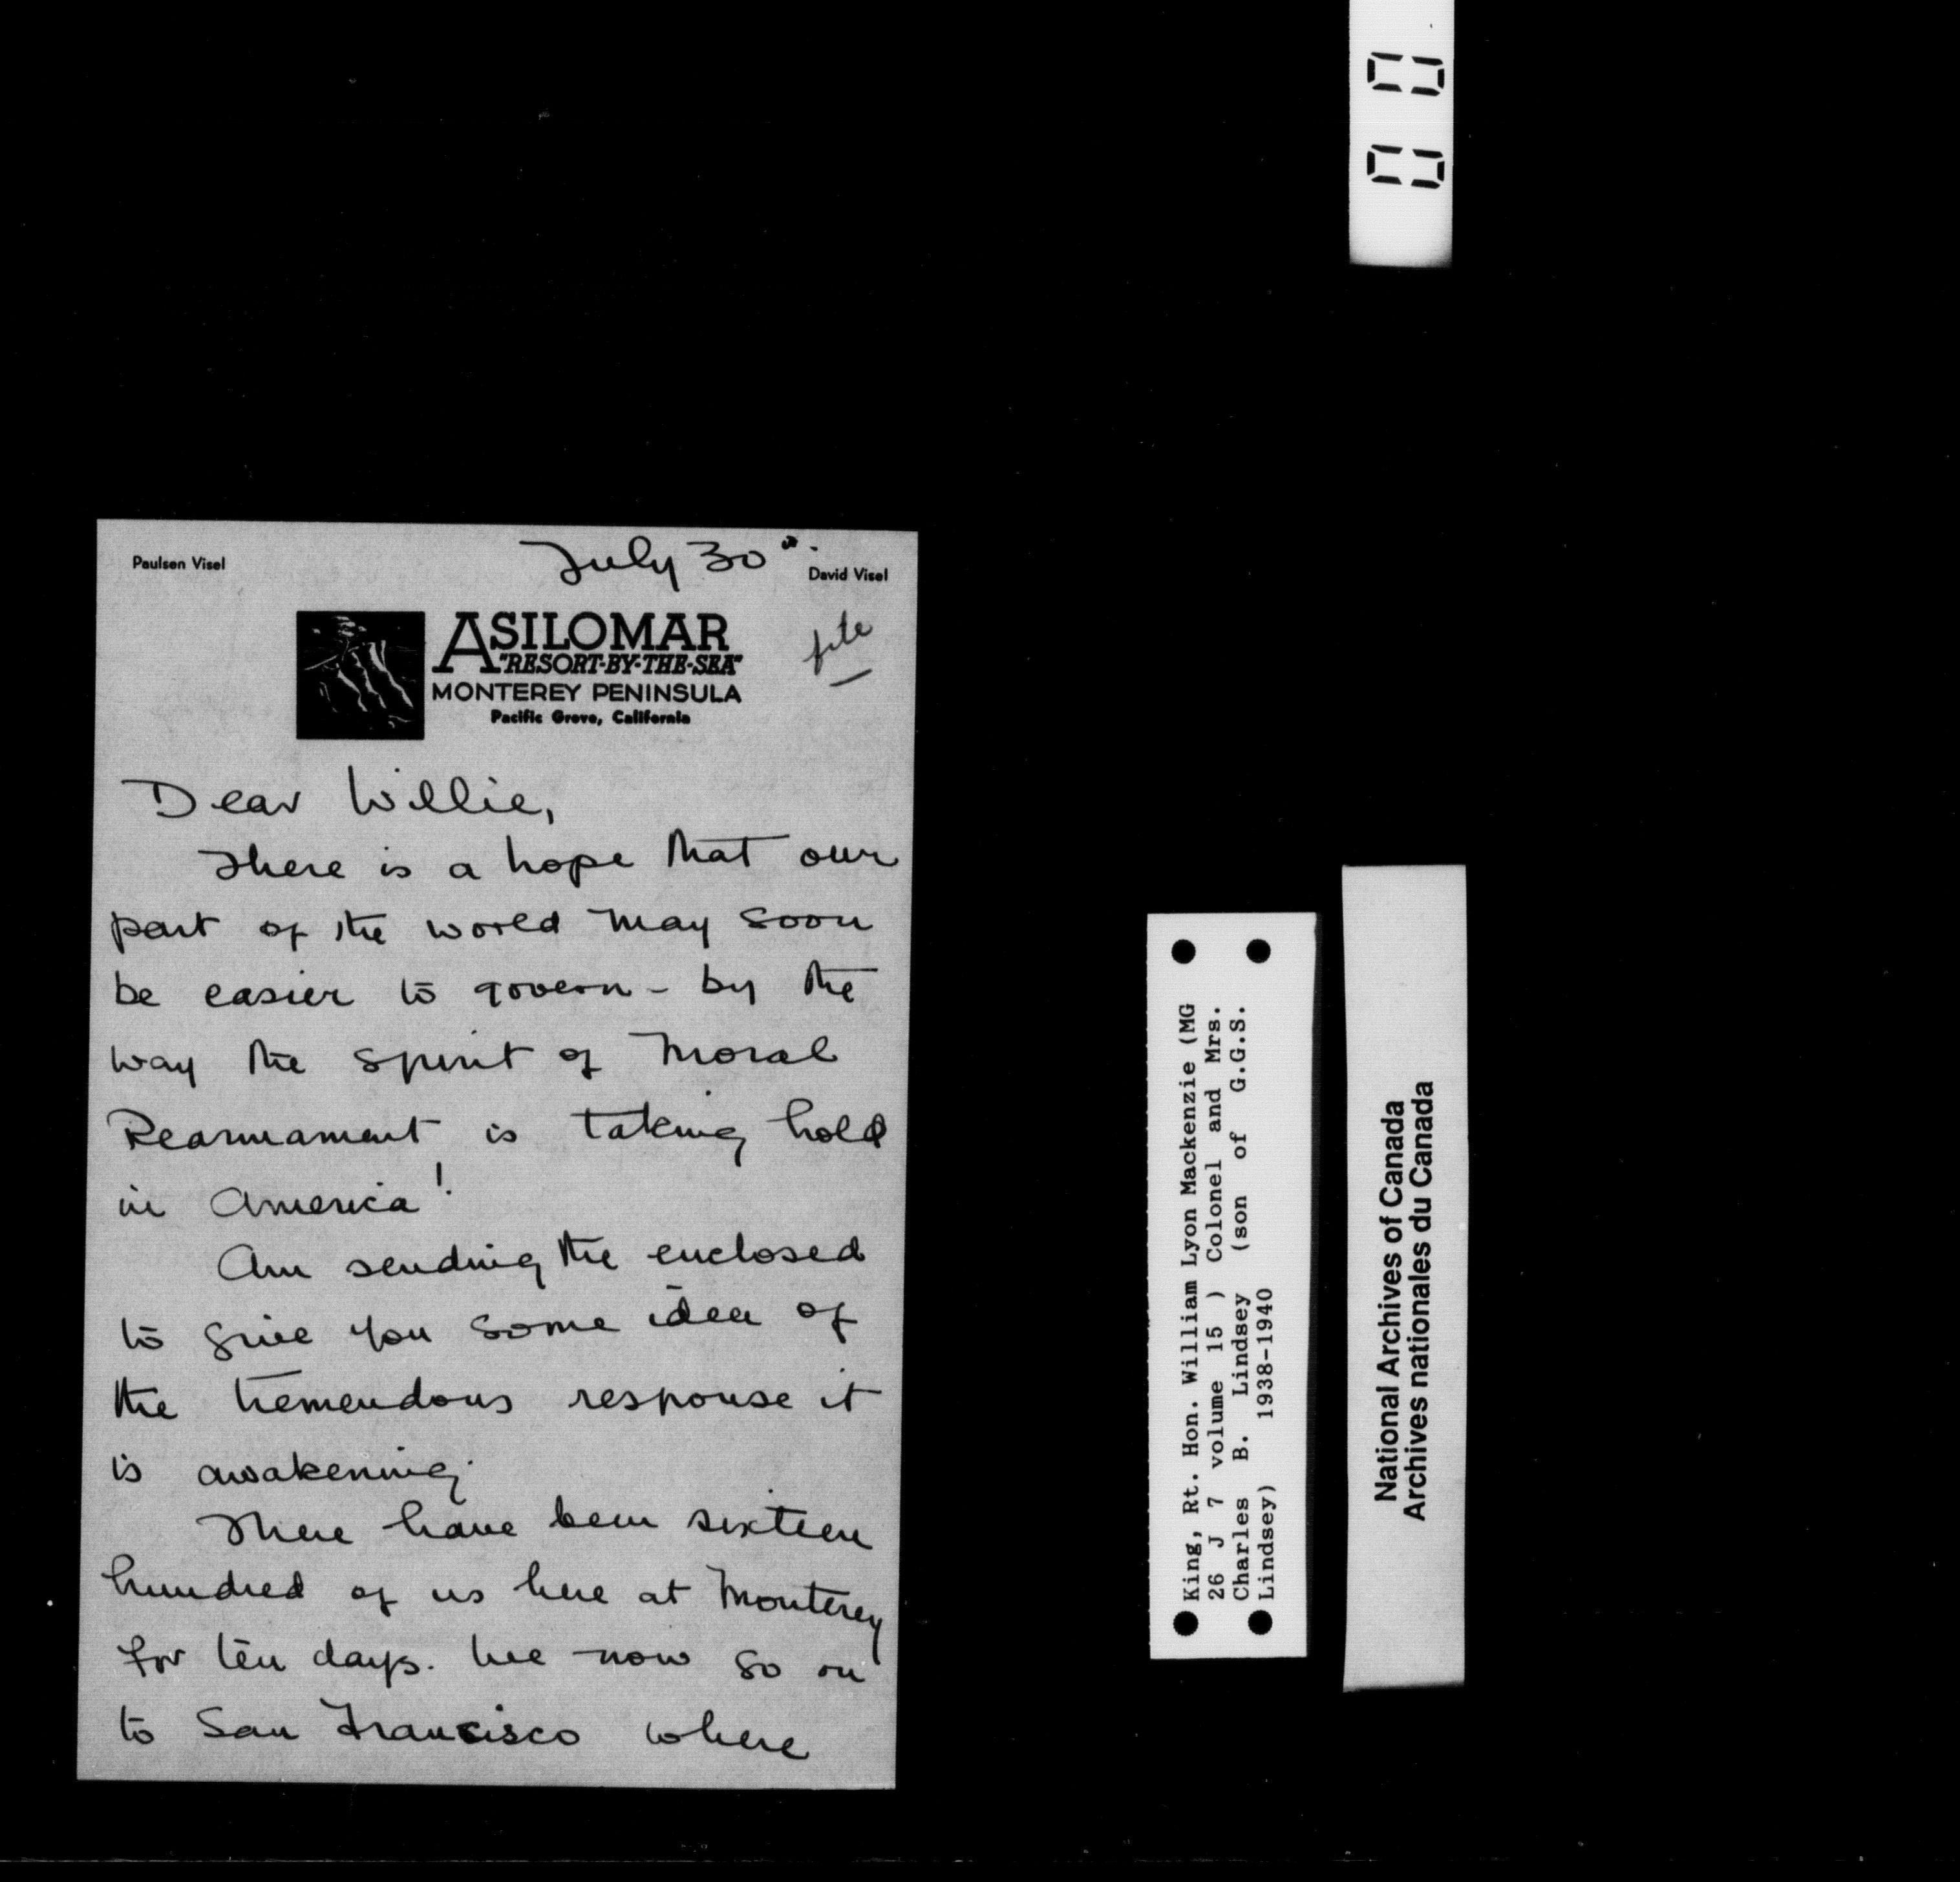 July 30th.
Paulsen Visel
David Visel
ASILOMAR
"RESORT-BY-THE-SEA"
MONTEREY PENINSULA
Pacific Grove, California
file
Dear Willie,
There is a hope that our
part of the world may soon
be easier to govern - by the
way the spirit of Moral
Rearmament is taking hold
in America!
Am sending the enclosed
to give you some idea of
the tremendous response it
is awakening.
There have been sixteen
hundred of us here at Monterey
for ten days. We now go on
to San Francisco where
King, Rt. Hon. William Lyon Mackenzie (MG
26 J 7 volume 15 ) Colonel and Mrs.
Charles B. Lindsey (son of G.G.S.
Lindsey) 1938-1940
National Archives of Canada
Archives nationales du Canada
00